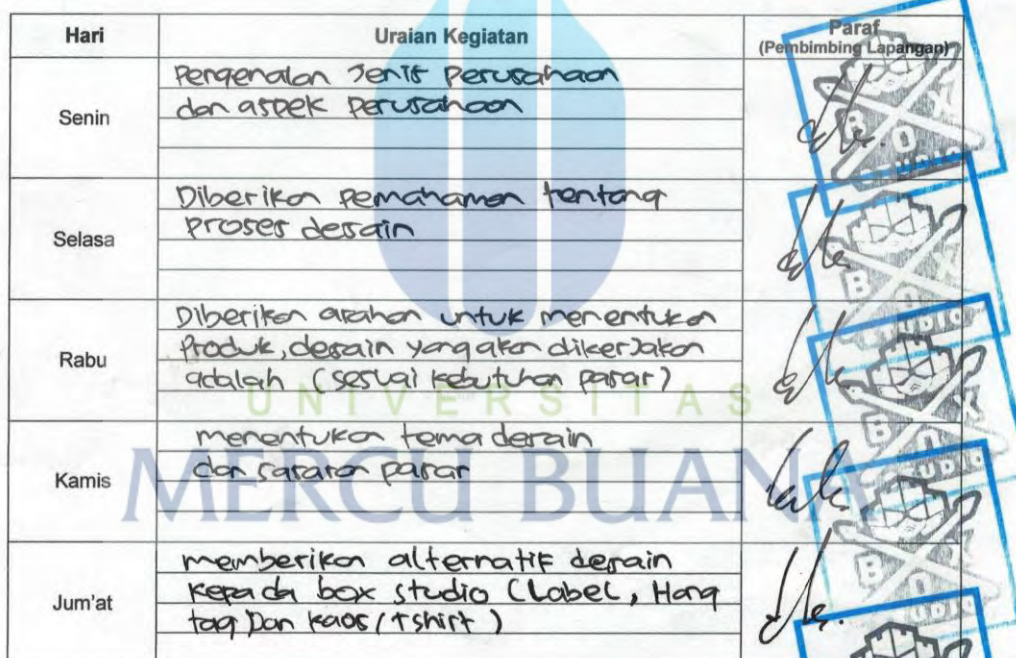 Hari
Uraian Kegiatan
Paraf
(Pembimbing Lapangan)
Senin
Pengenalan Jenis Perusahaan
dan aspek Perusahaan
Selasa
Diberikan Pemahaman tentang
Proses desain
Rabu
Diberikan arahan untuk menentukan
Produk, desain yang akan dikerjakan
adalah (sesuai kebutuhan pasar)
Kamis
menentukan tema desain
dan sasaran pasar
Jum'at
memberikan alternatif desain
kepada box studio (Label, Hang
tag Dan Kaos/Tshirt)
UNIVERSITAS
MERCU BUANA